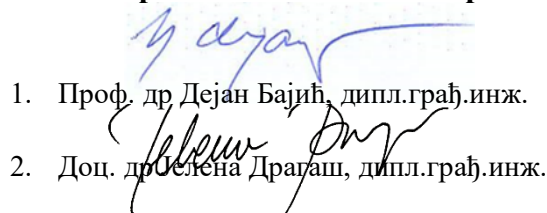 1. Проф. др Дејан Бајић, дипл.грађ.инж.
2. Доц. др Јелена Драгаш, дипл.грађ.инж.